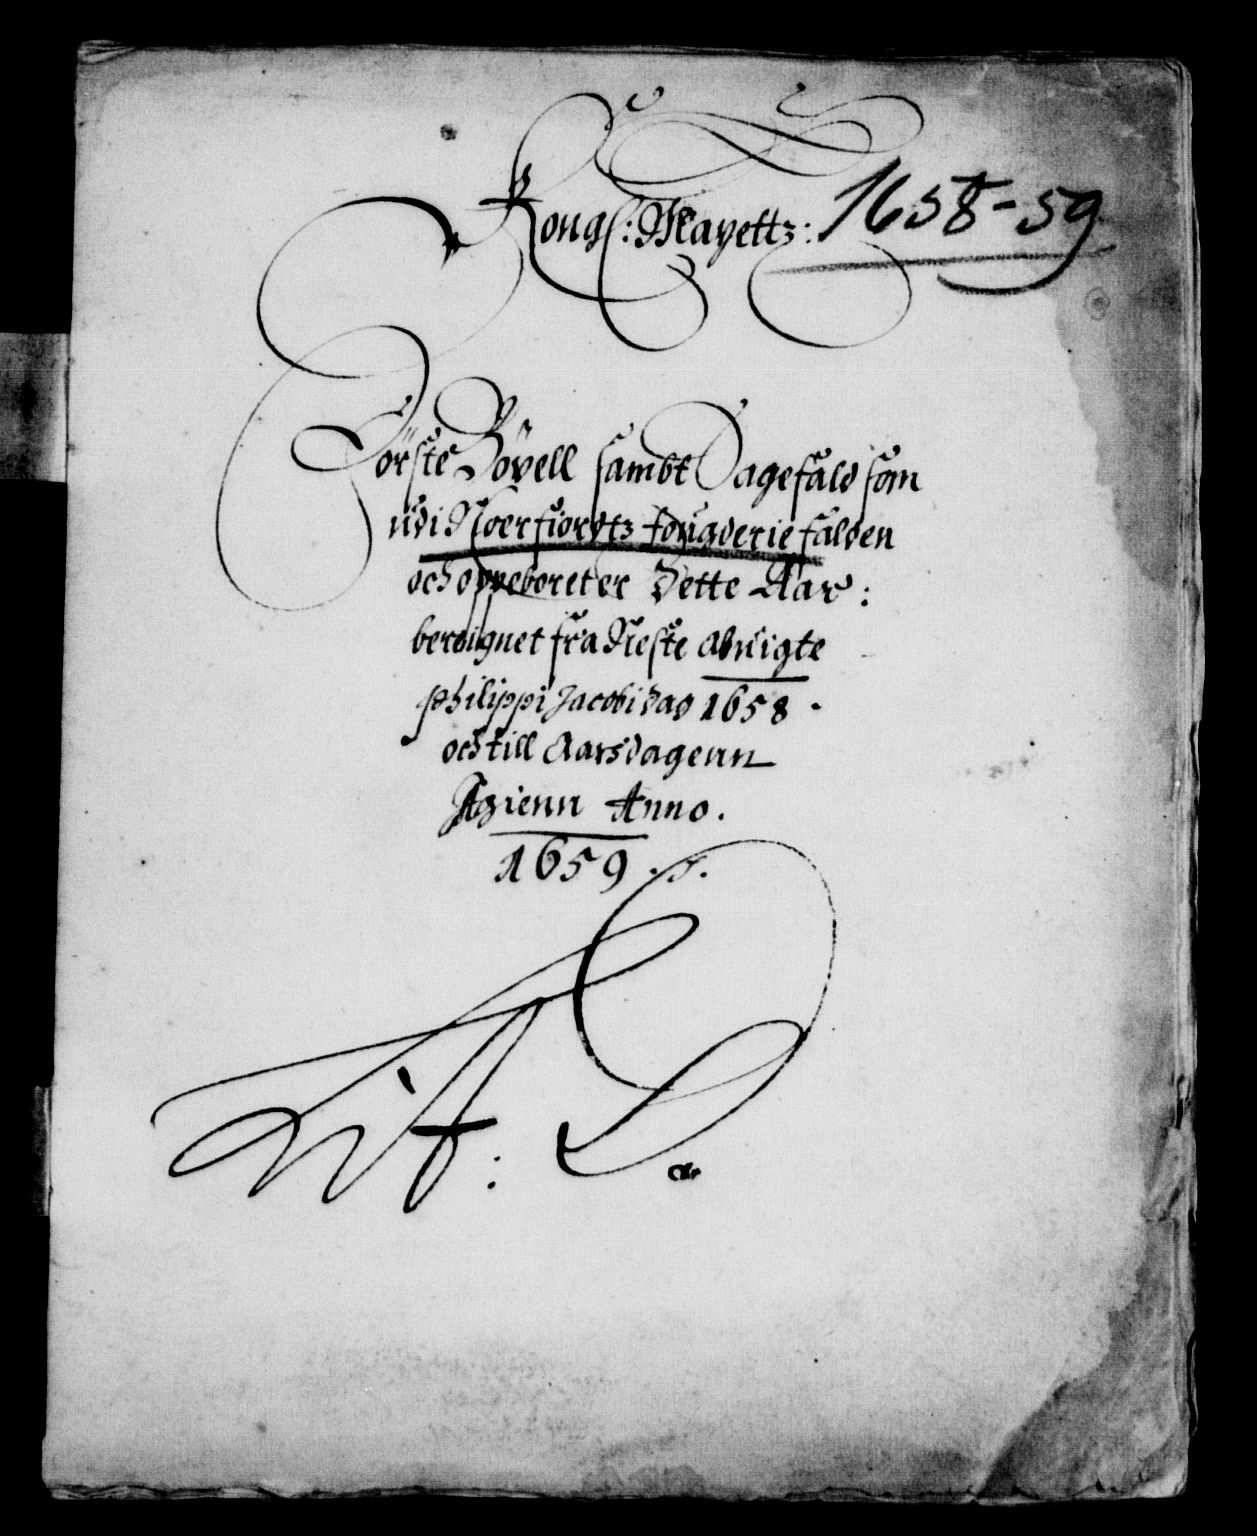 Kongl: Mayettz: 1658-59
Förste Bövell sambt Sagefald som
udi Noerfiordtz fougderie falden
och oppeboret er Dette Aar:
beroignet fra Neste abwigte
Philippi Jacobi dag 1658.
och till Aarsdagenn
Igienn Anno.
1659
Lit: D